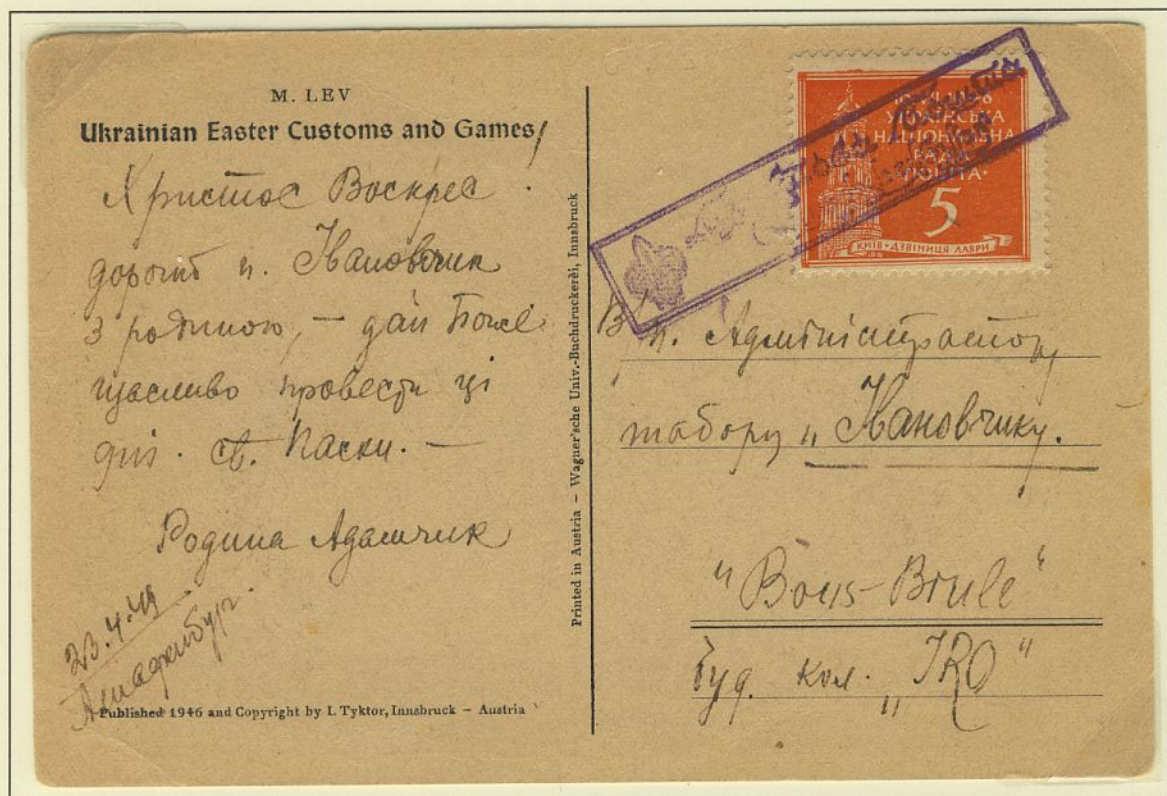 M. LEV
Ukrainian Easter Customs and Games
Христос Воскрес!
дорогий п. Івановчик
з родиною, – дай Боже
щасливо провести ці
дні св. Паски. –
Родина Адамчик
23.4.49
Ашафенбург.
Published 1946 and Copyright by I. Tyktor, Innsbruck – Austria
Printed in Austria – Wagner'sche Univ.-Buchdruckerei, Innsbruck
УКРАЇНСЬКА
НАЦІОНАЛЬНА
РАДА
ПОШТА
5
КИЇВ • ДЗВІНИЦЯ ЛАВРИ
В/п. Адміністратор
табору „Івановчику.
"Bois-Brule"
буд. кол. „IRO"